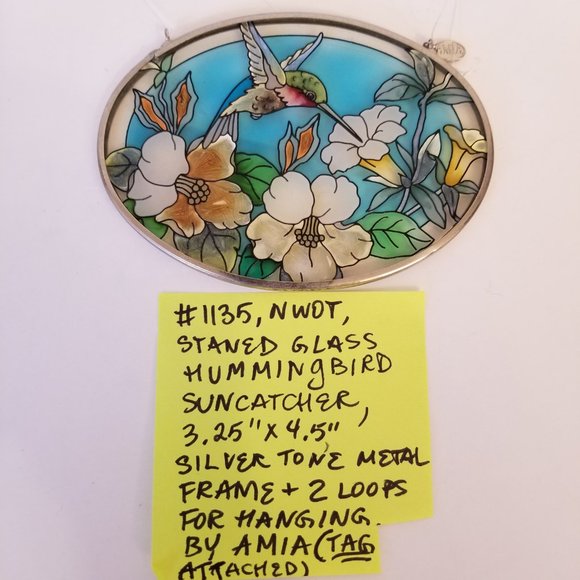 #1135, NWOT,
STANED GLASS
HUMMINgBIRD
SUNCATCHER,
3.25" X 4.5"
SILVER TONE METAL
FRAME + 2 LOOPS
FOR HANGING.
BY AMIA (TAG
ATTACHED)